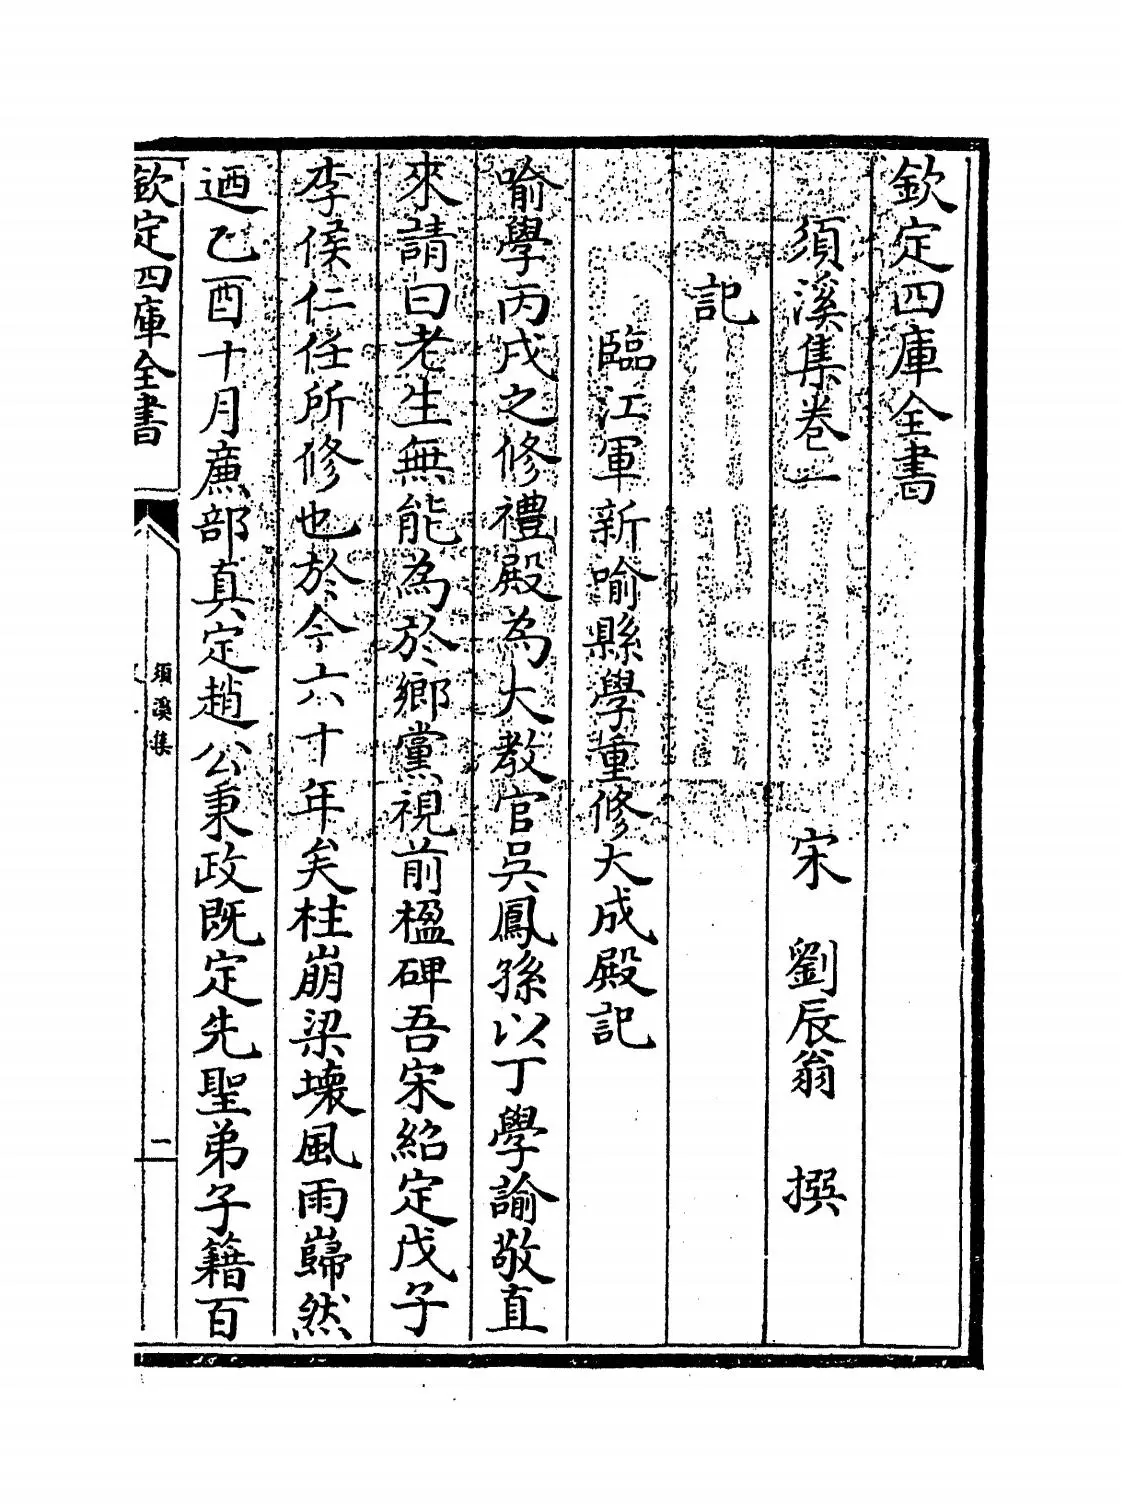 欽定四庫全書
須溪集卷一 宋 劉辰翁 撰
記
臨江軍新喻縣學重修大成殿記
喻學丙戌之修禮殿為大教官吳鳳孫以丁學諭敬直
來請曰老生無能為於鄉黨視前楹碑吾宋紹定戊子
李侯仁任所修也於今六十年矣柱崩梁壞風雨巋然
迺乙酉十月廉部真定趙公秉政既定先聖弟子籍百
欽定四庫全書
須溪集
二